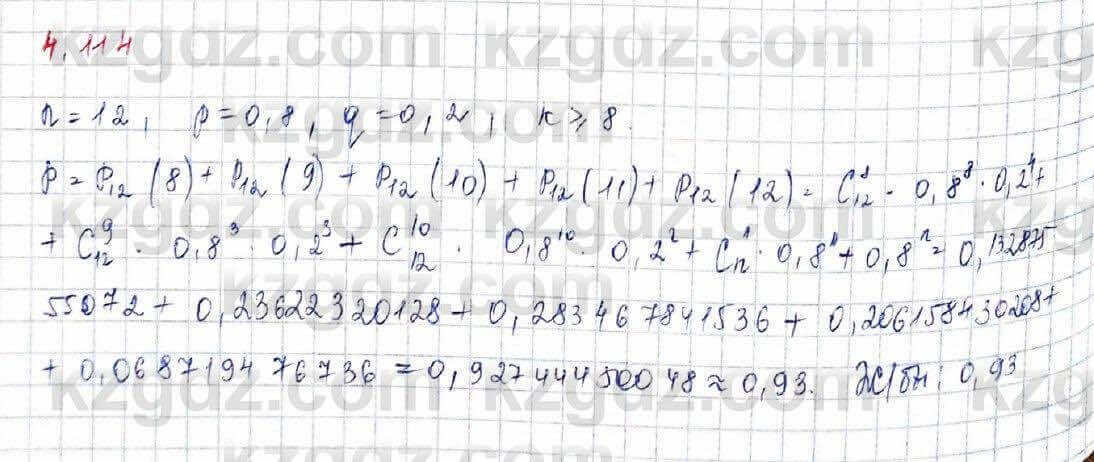 4.114
n=12, p=0,8, q=0,2, k≥8.
P=P₁₂(8)+P₁₂(9)+P₁₂(10)+P₁₂(11)+P₁₂(12)=C₁₂⁸·0,8⁸·0,2⁴+
+C₁₂⁹·0,8⁹·0,2³+C₁₂¹⁰·0,8¹⁰·0,2²+ 0,8 +0,8 =0,132875
55072+0,23622320128+0,283467841536+0,206158430208+
+0,068719476736=0,92744450048≈0,93. Ж/бы: 0,93
kzgdz.com